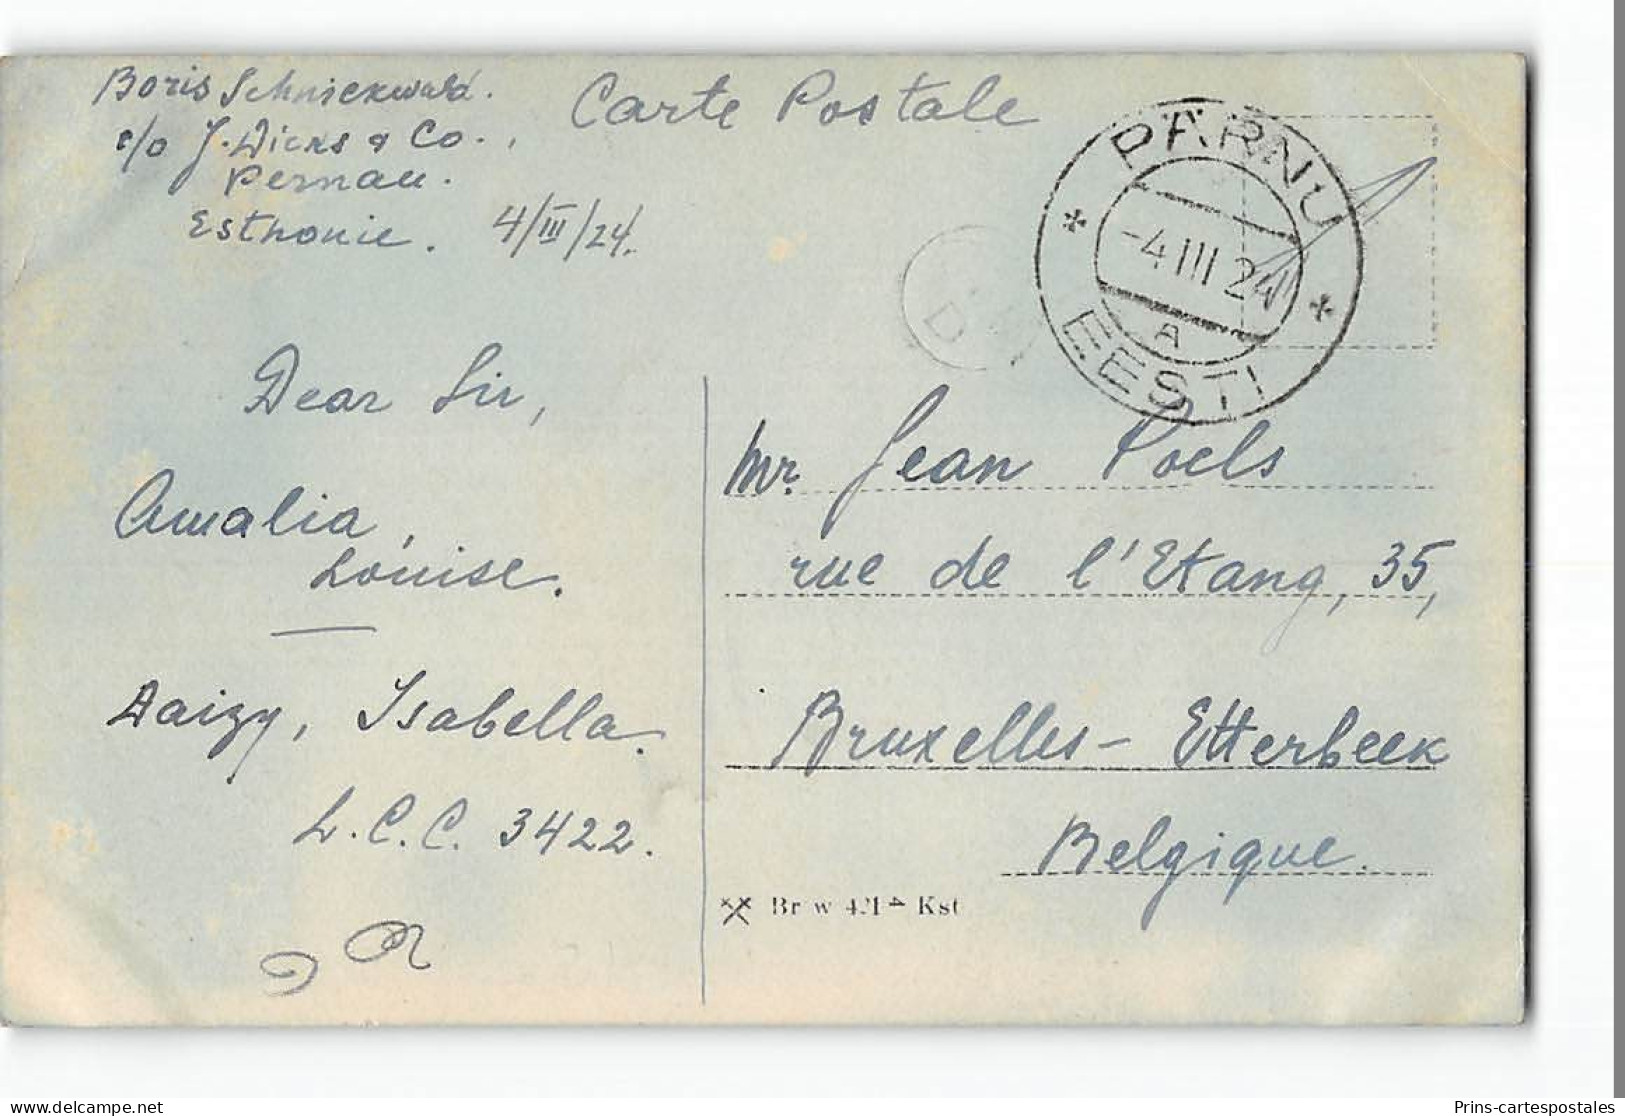 Boris Schnickwald.
c/o J. Dicks & Co.,
Pernau.
Esthonie. 4/III/24.
Carte Postale
PÄRNU
-4 III 24
A
EESTI
Dear Sir,
Amalia,
Louise.
Daizy, Isabella.
L.C.C. 3422.
Mr. Jean Poels
rue de l'Etang, 35,
Bruxelles - Etterbeek
Belgique.
Br w 421 4 Kst
Prins-cartespostales